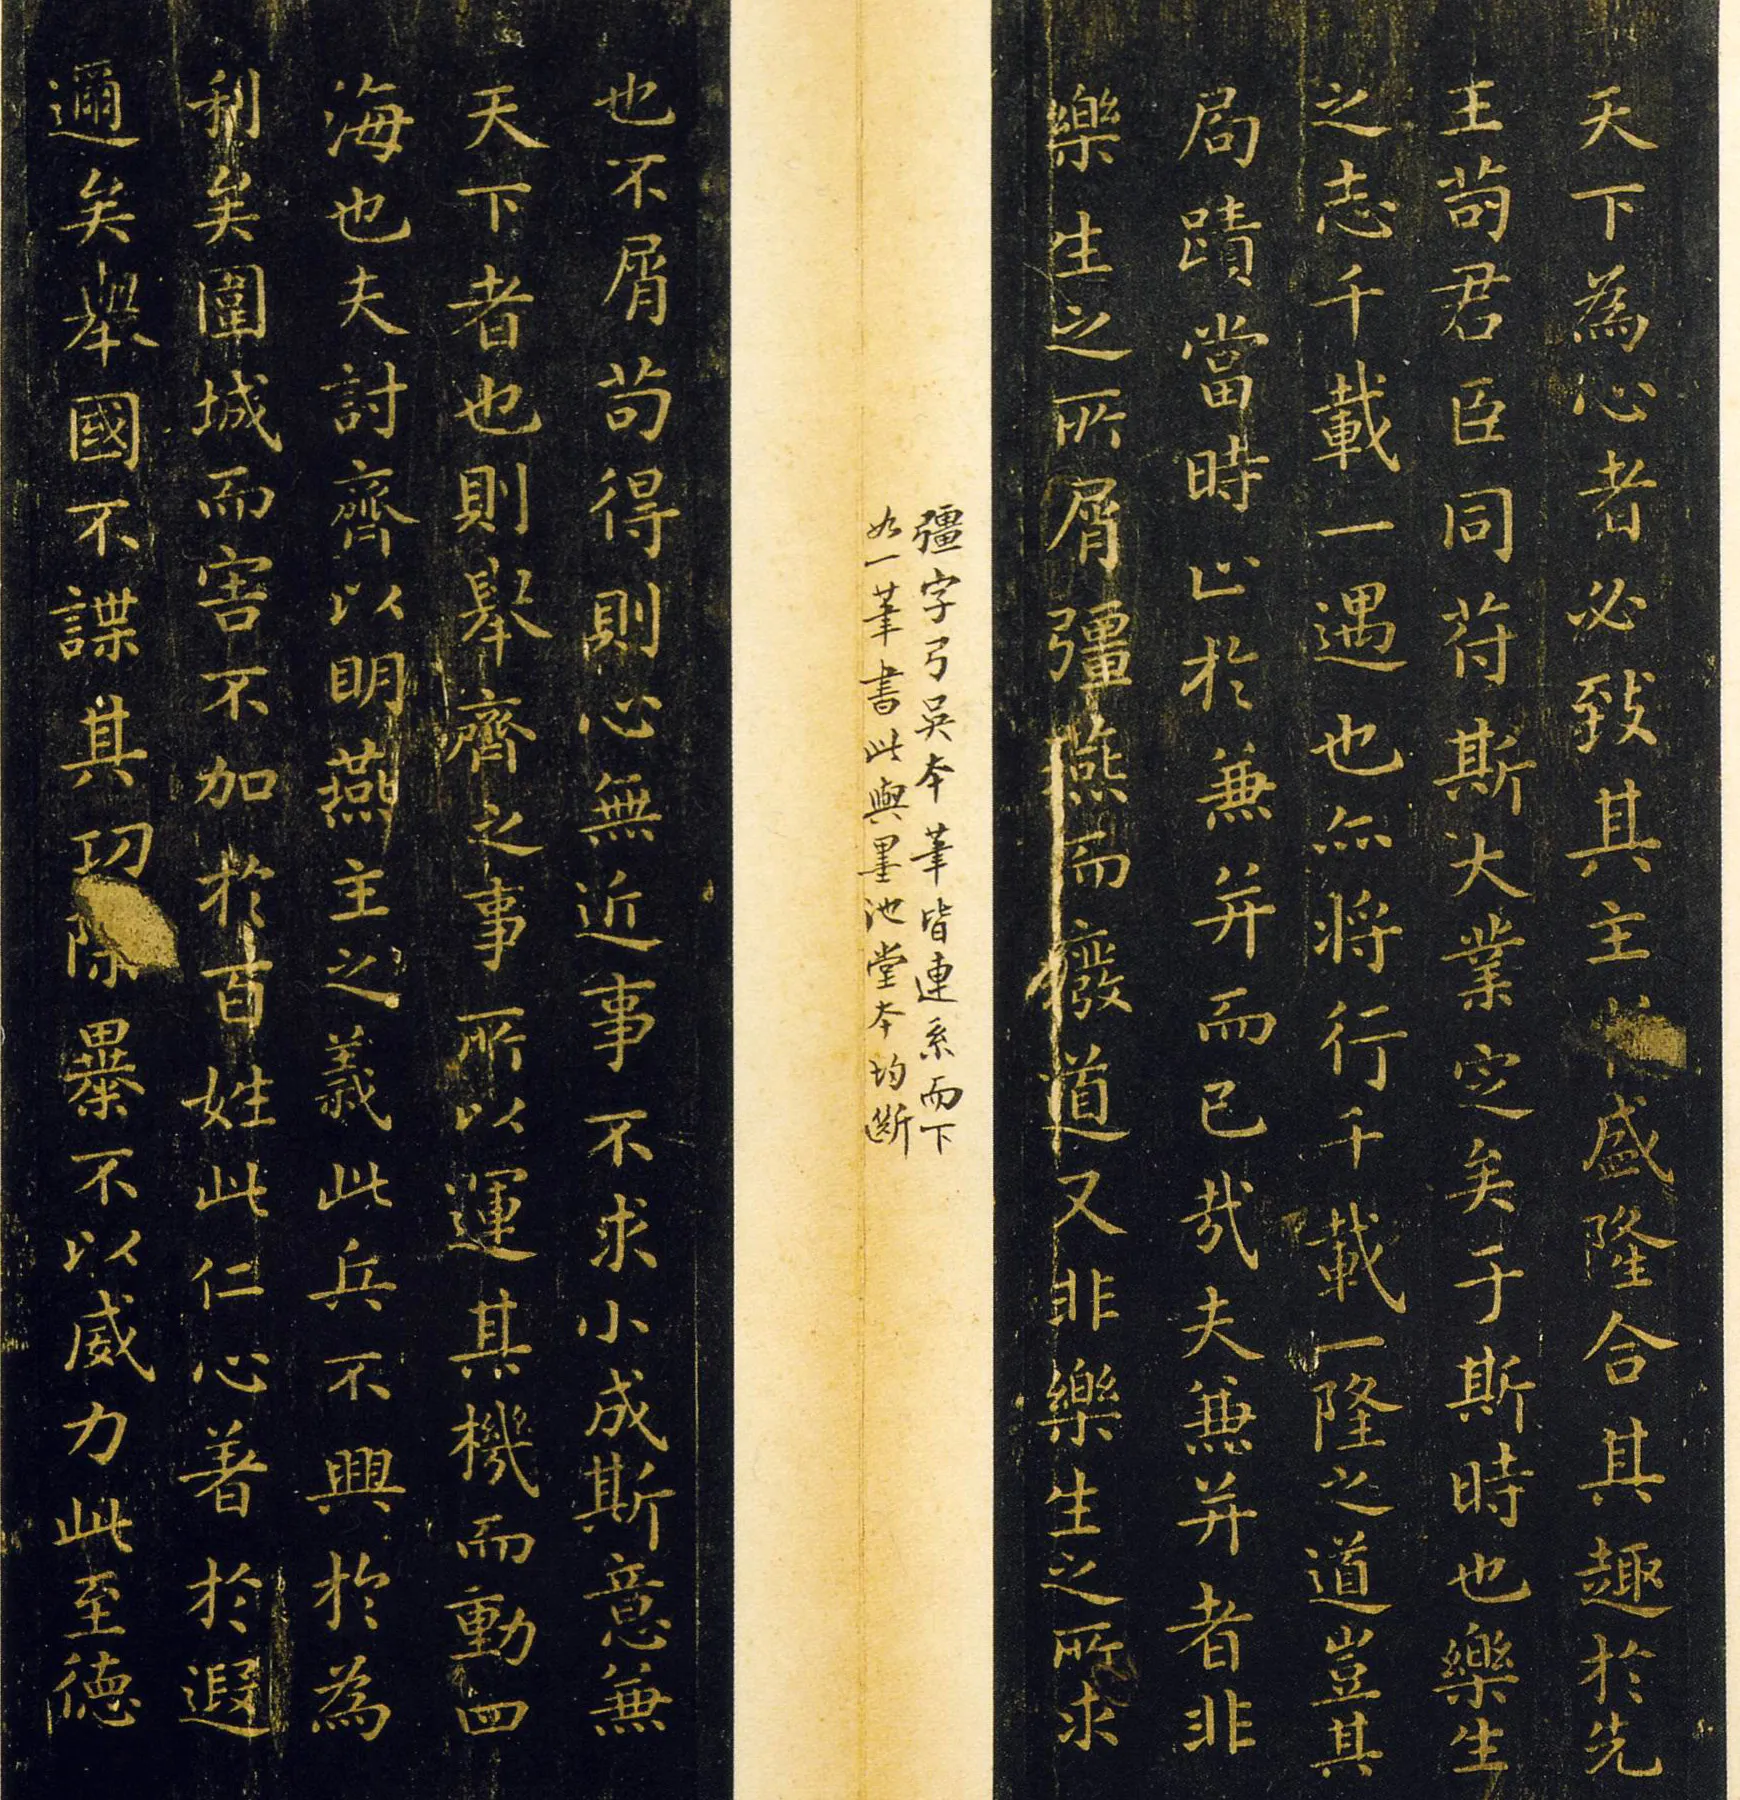 天下為心者必致其主於盛隆合其趣於先
王苟君臣同符斯大業定矣于斯時也樂生
之志千載一遇也亦將行千載一隆之道豈其
局蹟當時止於兼并而已哉夫兼并者非
樂生之所屑彊燕而廢道又非樂生之所求
彊字弓吳本筆皆連系而下
如一筆書此與墨池堂本均斷
也不屑苟得則心無近事不求小成斯意兼
天下者也則舉齊之事所以運其機而動四
海也夫討齊以明燕主之義此兵不興於為
利矣圍城而害不加於百姓此仁心著於遐
邇矣舉國不謀其功除暴不以威力此至德